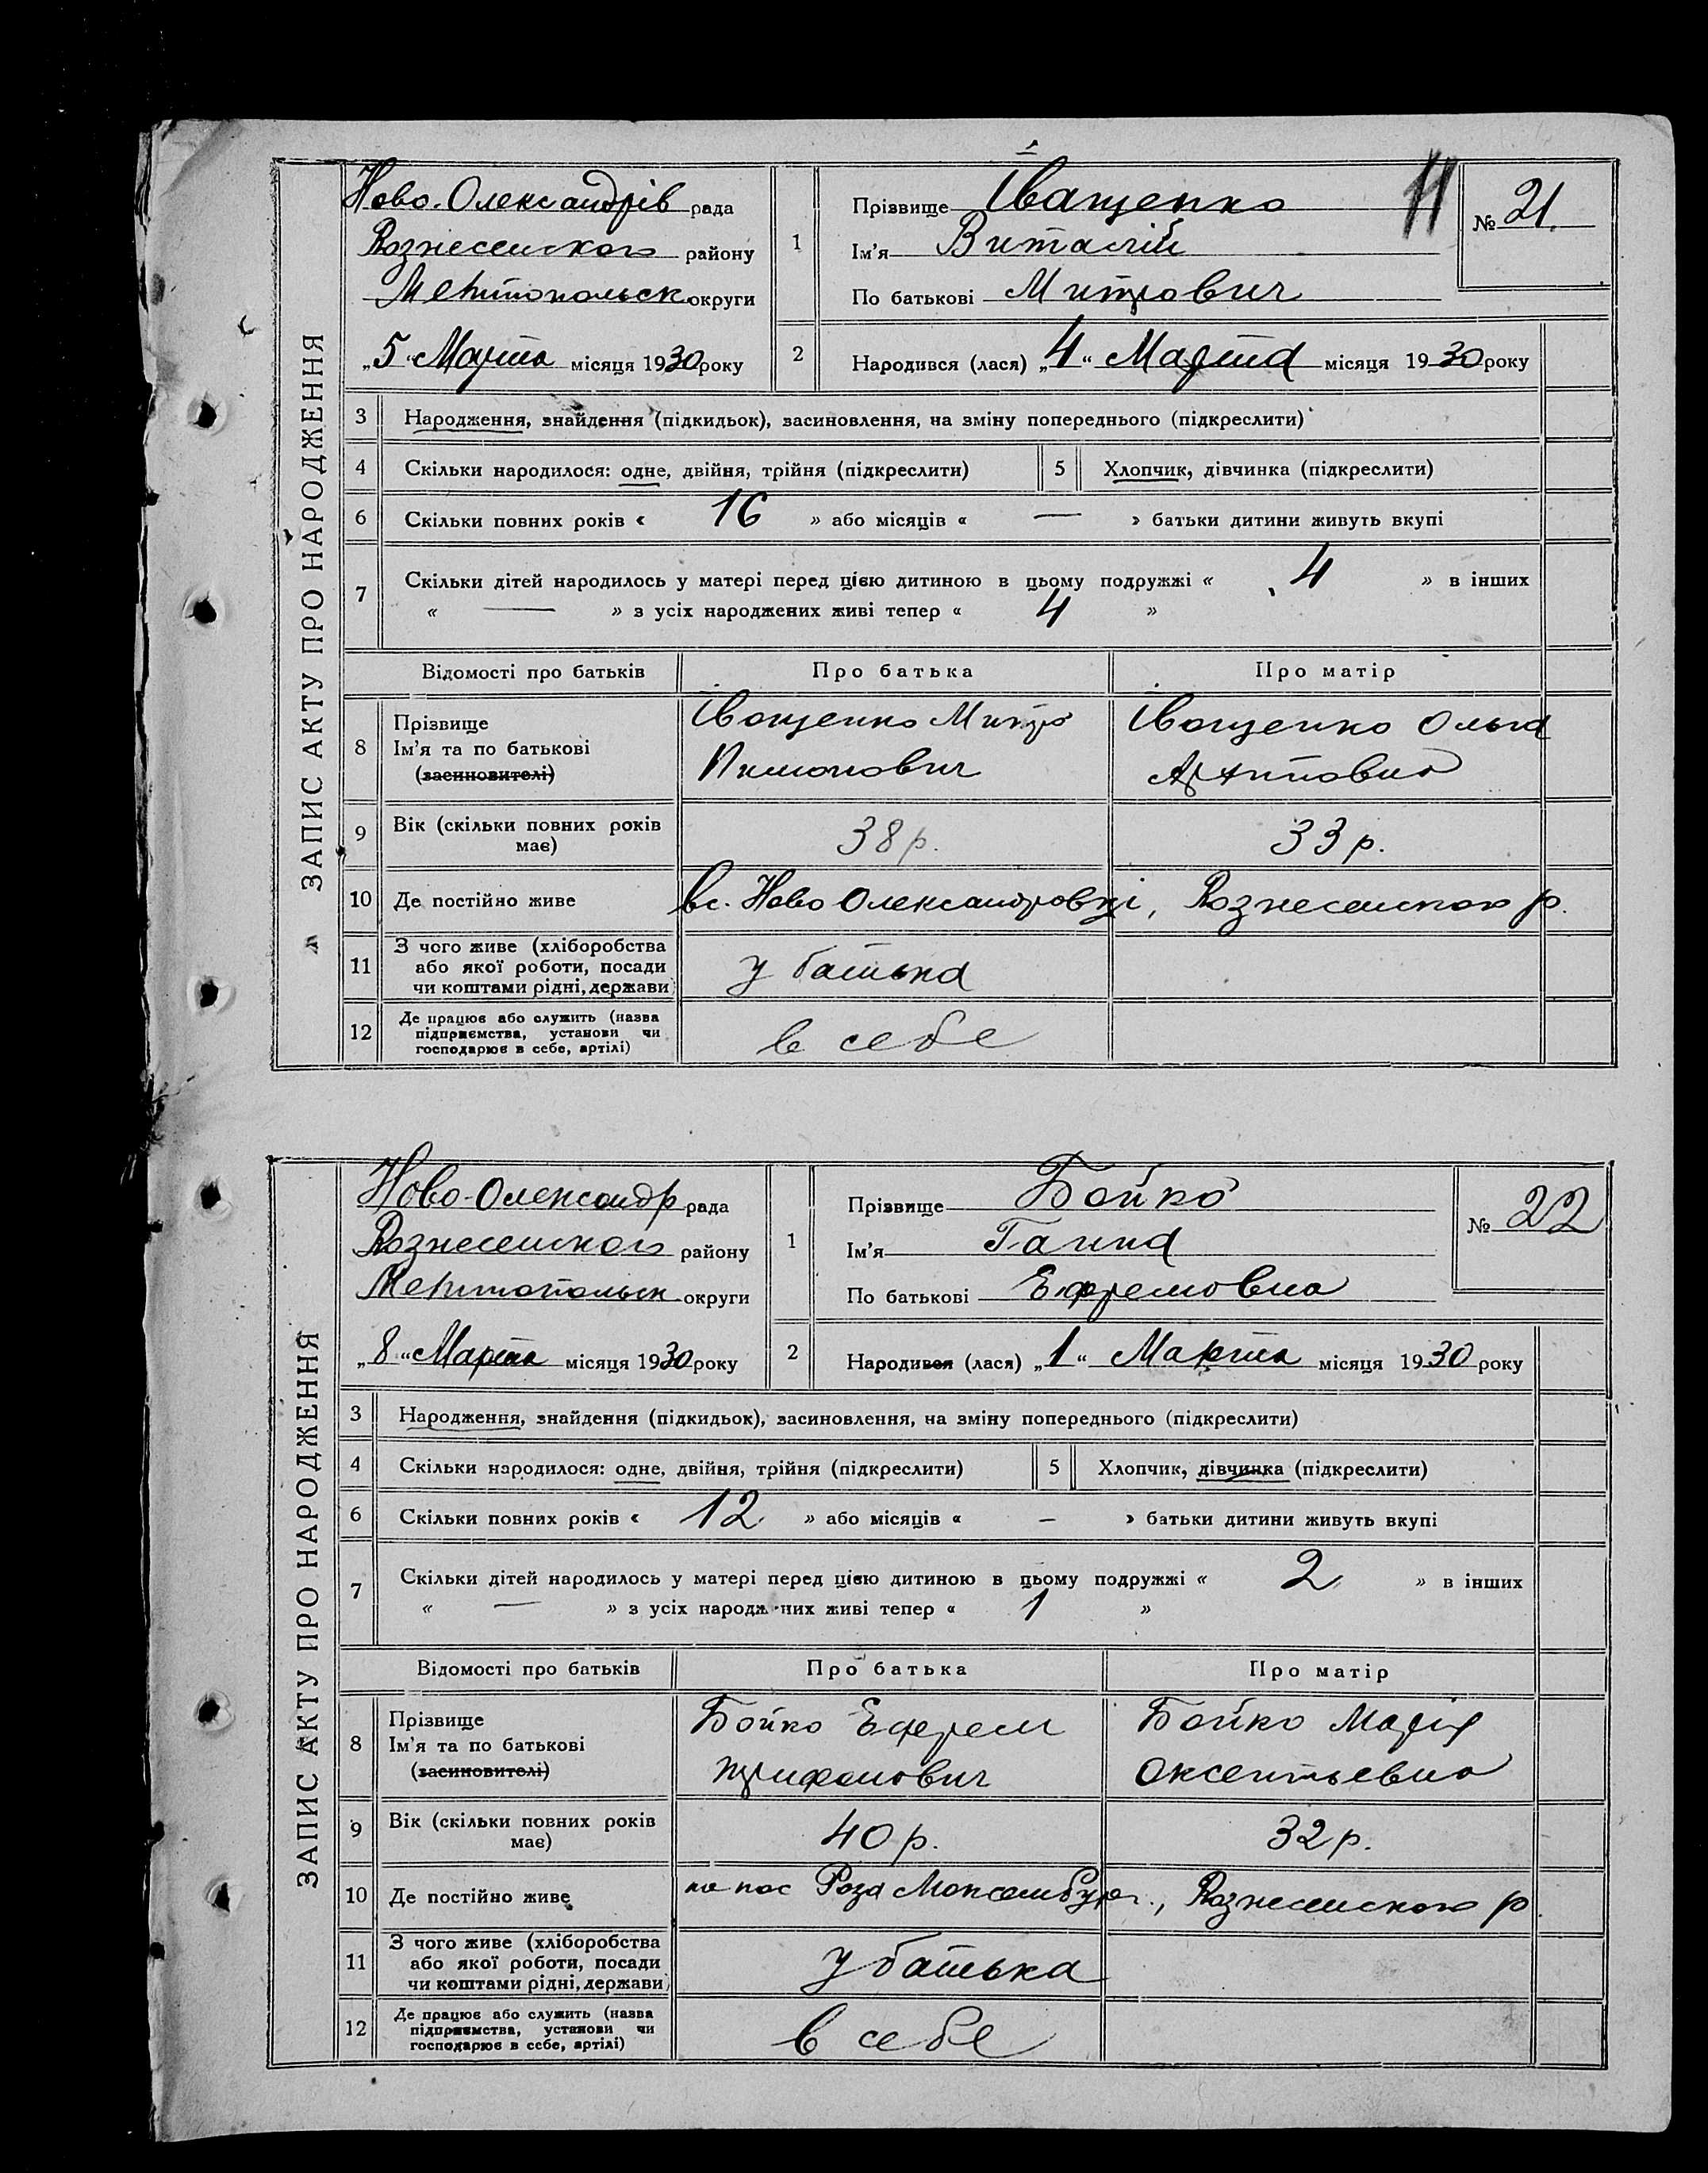 ЗАПИС АКТУ ПРО НАРОДЖЕННЯ
11
Ново-Олександрів рада
Вознесенского району
Мелітопольск округи
„5“ Марта місяця 1930 року
1 Прізвище Іващенко
Ім'я Виталій
По батькові Митрович
№ 21.
2 Народився (лася) „4“ Марта місяця 1930 року
3 Народження, знайдення (підкидьок), засиновлення, на зміну попереднього (підкреслити)
4 Скільки народилося: одне, двійня, трійня (підкреслити) 5 Хлопчик, дівчинка (підкреслити)
6 Скільки повних років « 16 » або місяців « — » батьки дитини живуть вкупі
7 Скільки дітей народилось у матері перед цією дитиною в цьому подружжі « 4 » в інших
« — » з усіх народжених живі тепер « 4 »
Відомості про батьків Про батька Про матір
8 Прізвище
Ім'я та по батькові
(засиновителі)
Іващенко Митро
Пимонович
Іващенко Ольга
Архиповна
9 Вік (скільки повних років
має)
38 р. 33 р.
10 Де постійно живе в с. Ново Олександровці, Вознесенского р.
11 З чого живе (хліборобства
або якої роботи, посади
чи коштами рідні, держави)
у батька
12 Де працює або служить (назва
підприємства, установи чи
господарює в себе, артілі)
в себе
ЗАПИС АКТУ ПРО НАРОДЖЕННЯ
Ново-Олександр рада
Вознесенского району
Мелітопольск округи
„8“ Марта місяця 1930 року
1 Прізвище Бойко
Ім'я Ганна
По батькові Ефремовна
№ 22
2 Народився (лася) „1“ Марта місяця 1930 року
3 Народження, знайдення (підкидьок), засиновлення, на зміну попереднього (підкреслити)
4 Скільки народилося: одне, двійня, трійня (підкреслити) 5 Хлопчик, дівчинка (підкреслити)
6 Скільки повних років « 12 » або місяців « – » батьки дитини живуть вкупі
7 Скільки дітей народилось у матері перед цією дитиною в цьому подружжі « 2 » в інших
« — » з усіх народж них живі тепер « 1 »
Відомості про батьків Про батька Про матір
8 Прізвище
Ім'я та по батькові
(засиновителі)
Бойко Ефрем
Трифонович
Бойко Марія
Оксентьевна
9 Вік (скільки повних років
має)
40 р. 32 р.
10 Де постійно живе на пос Роза, Вознесенского р
11 З чого живе (хліборобства
або якої роботи, посади
чи коштами рідні, держави)
у батька
12 Де працює або служить (назва
підприємства, установи чи
господарює в себе, артілі)
в себе